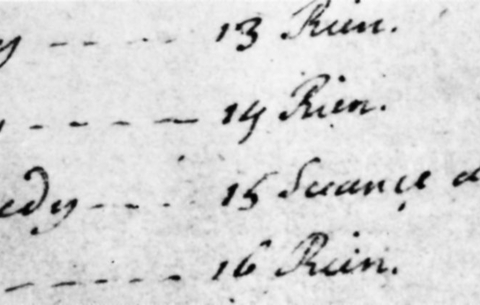 y ---- 13 Rien.
----- 14 Rien.
edy---- 15 Séance
------ 16 Rien.